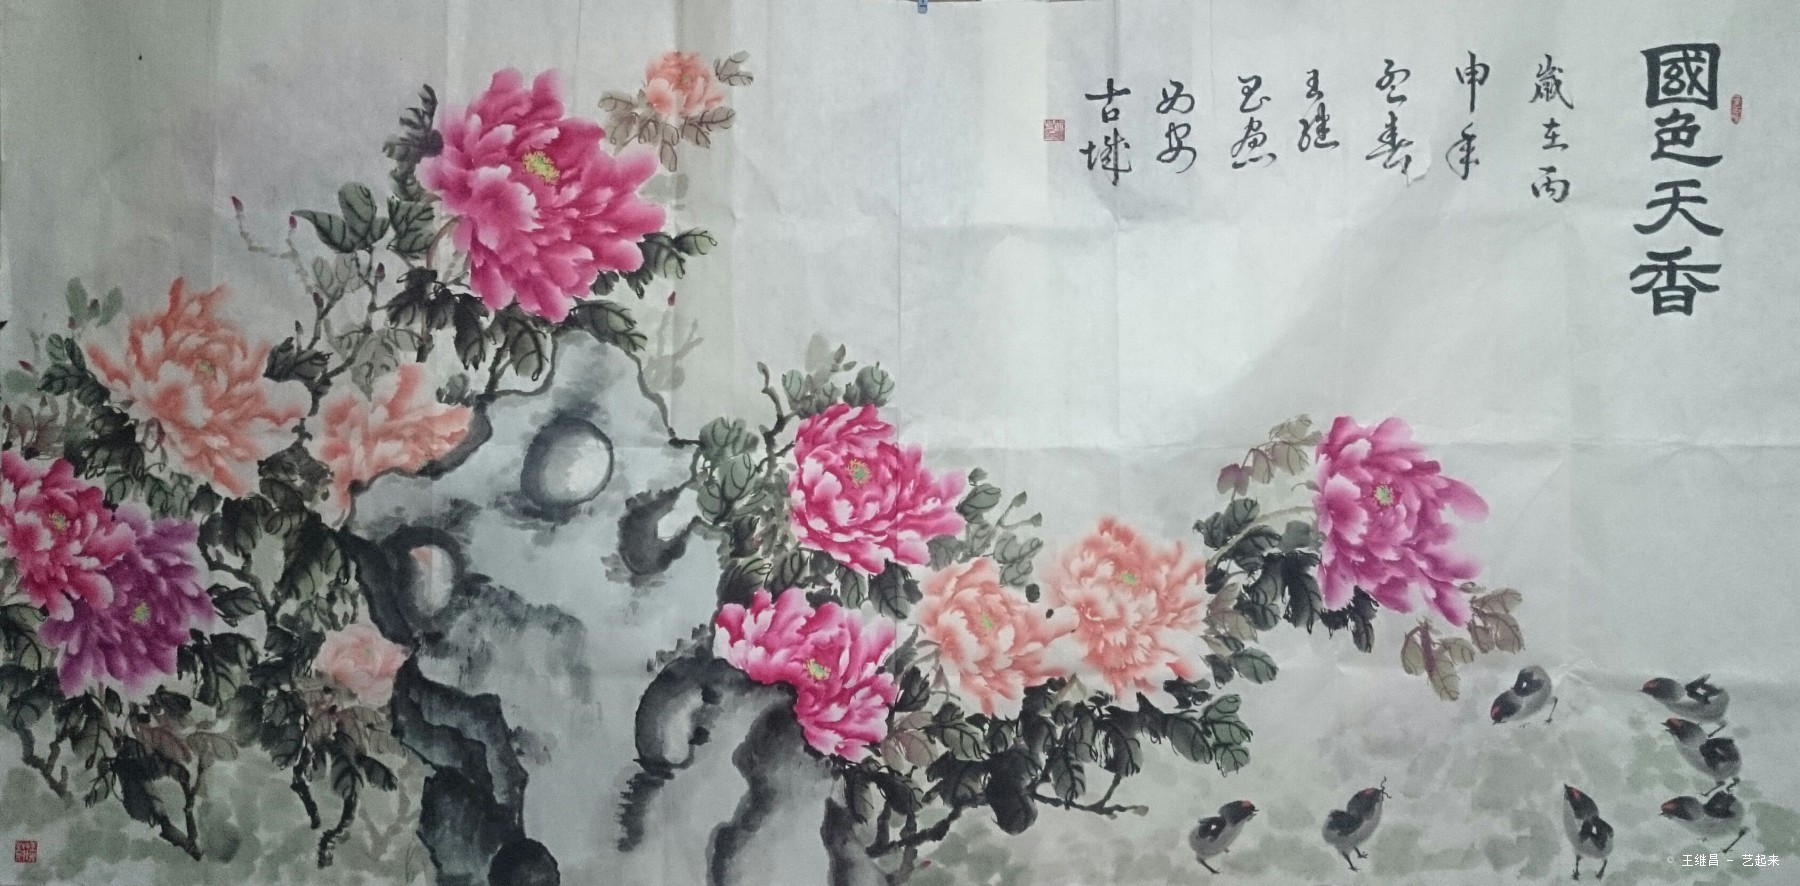 國色天香
歲在丙
申年
春
王继
昌
西安
古城
© 王继昌 - 艺起来